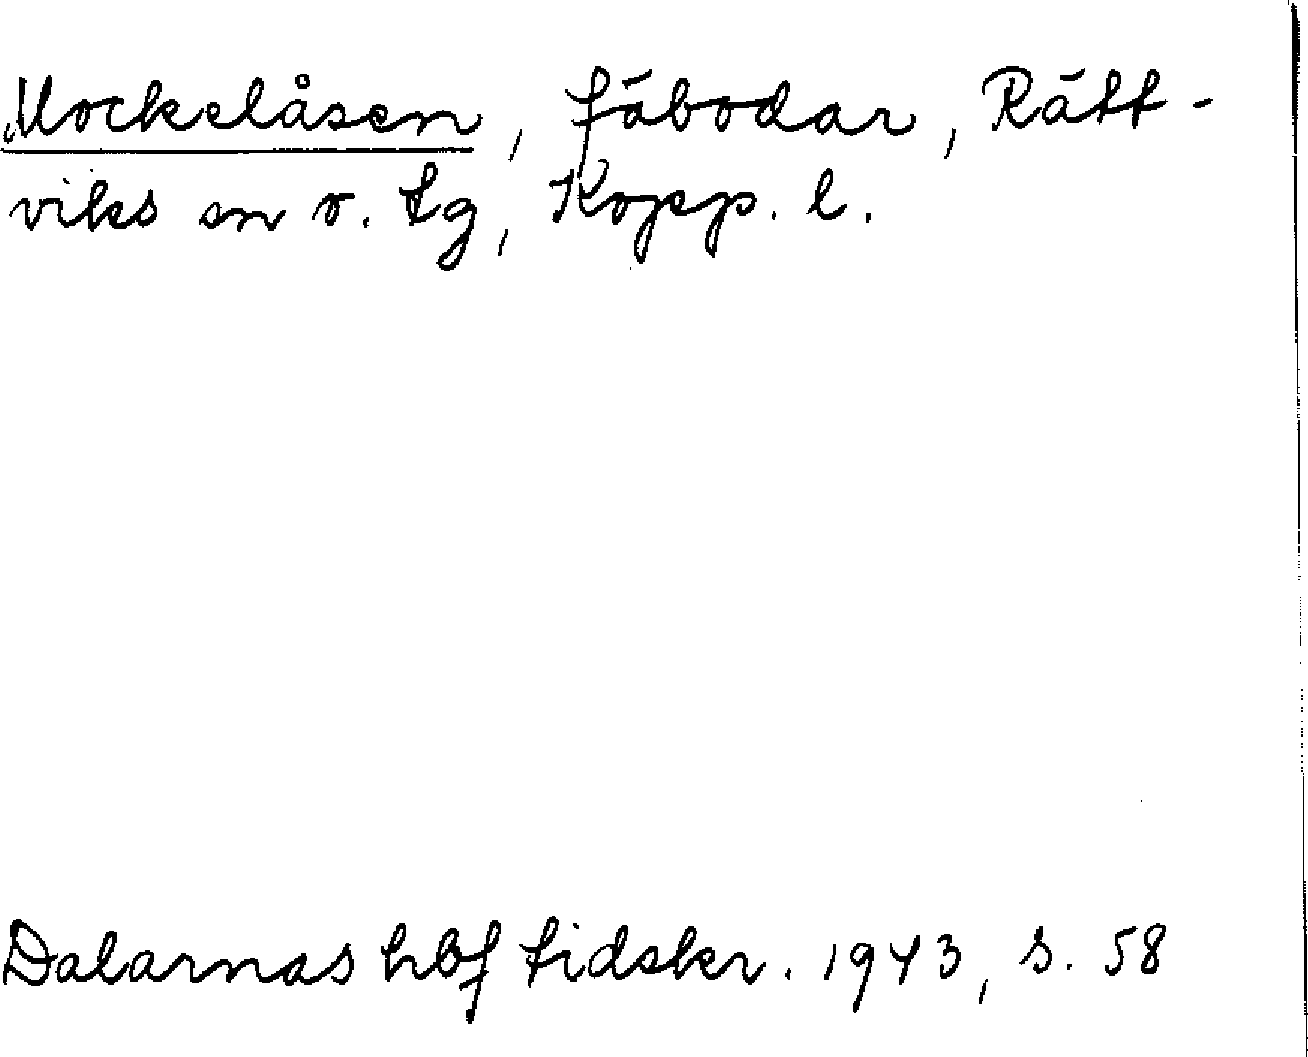 Mockelåsen, fäbodar, Rätt-
viks sn o. tg, Kopp. l.
Dalarnas hbf tidskr. 1943, s. 58